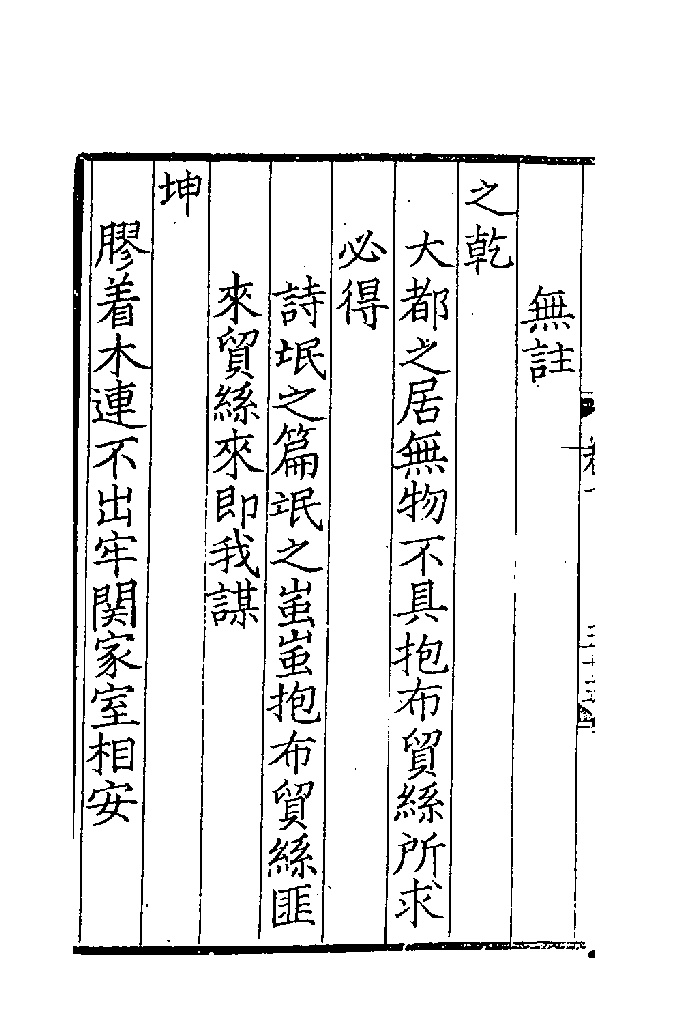 無註
之乾
大都之居無物不具抱布貿絲所求
必得
詩氓之篇氓之蚩蚩抱布貿絲匪
來貿絲來即我謀
坤
膠着木連不出牢関家室相安